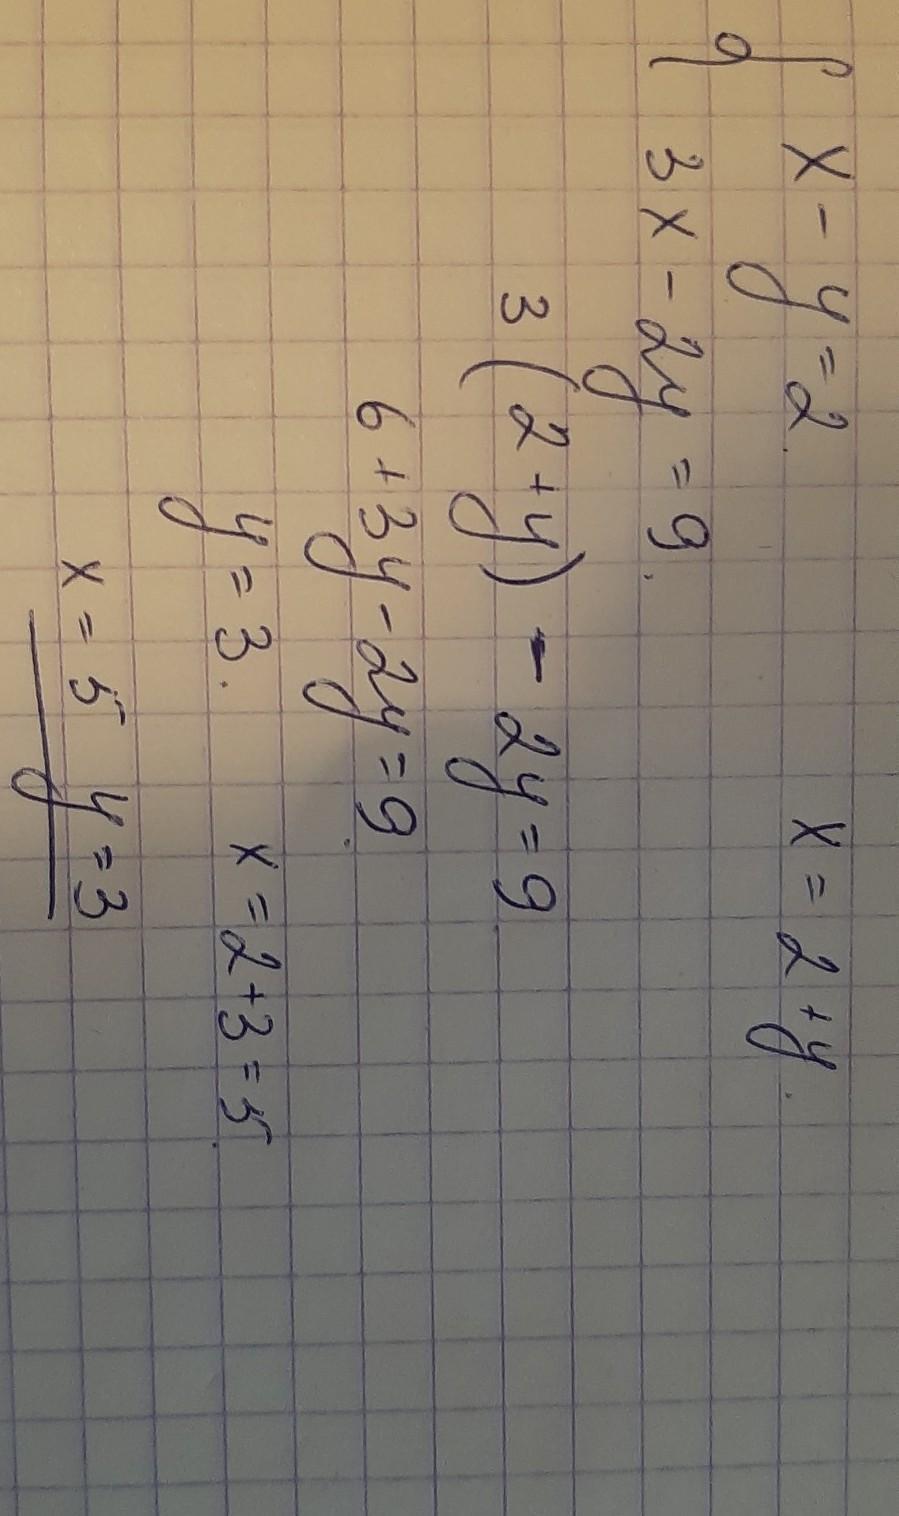 { x - y = 2. x = 2 + y.
3x - 2y = 9.
3(2 + y) - 2y = 9
6 + 3y - 2y = 9.
y = 3. x = 2 + 3 = 5.
x = 5 y = 3